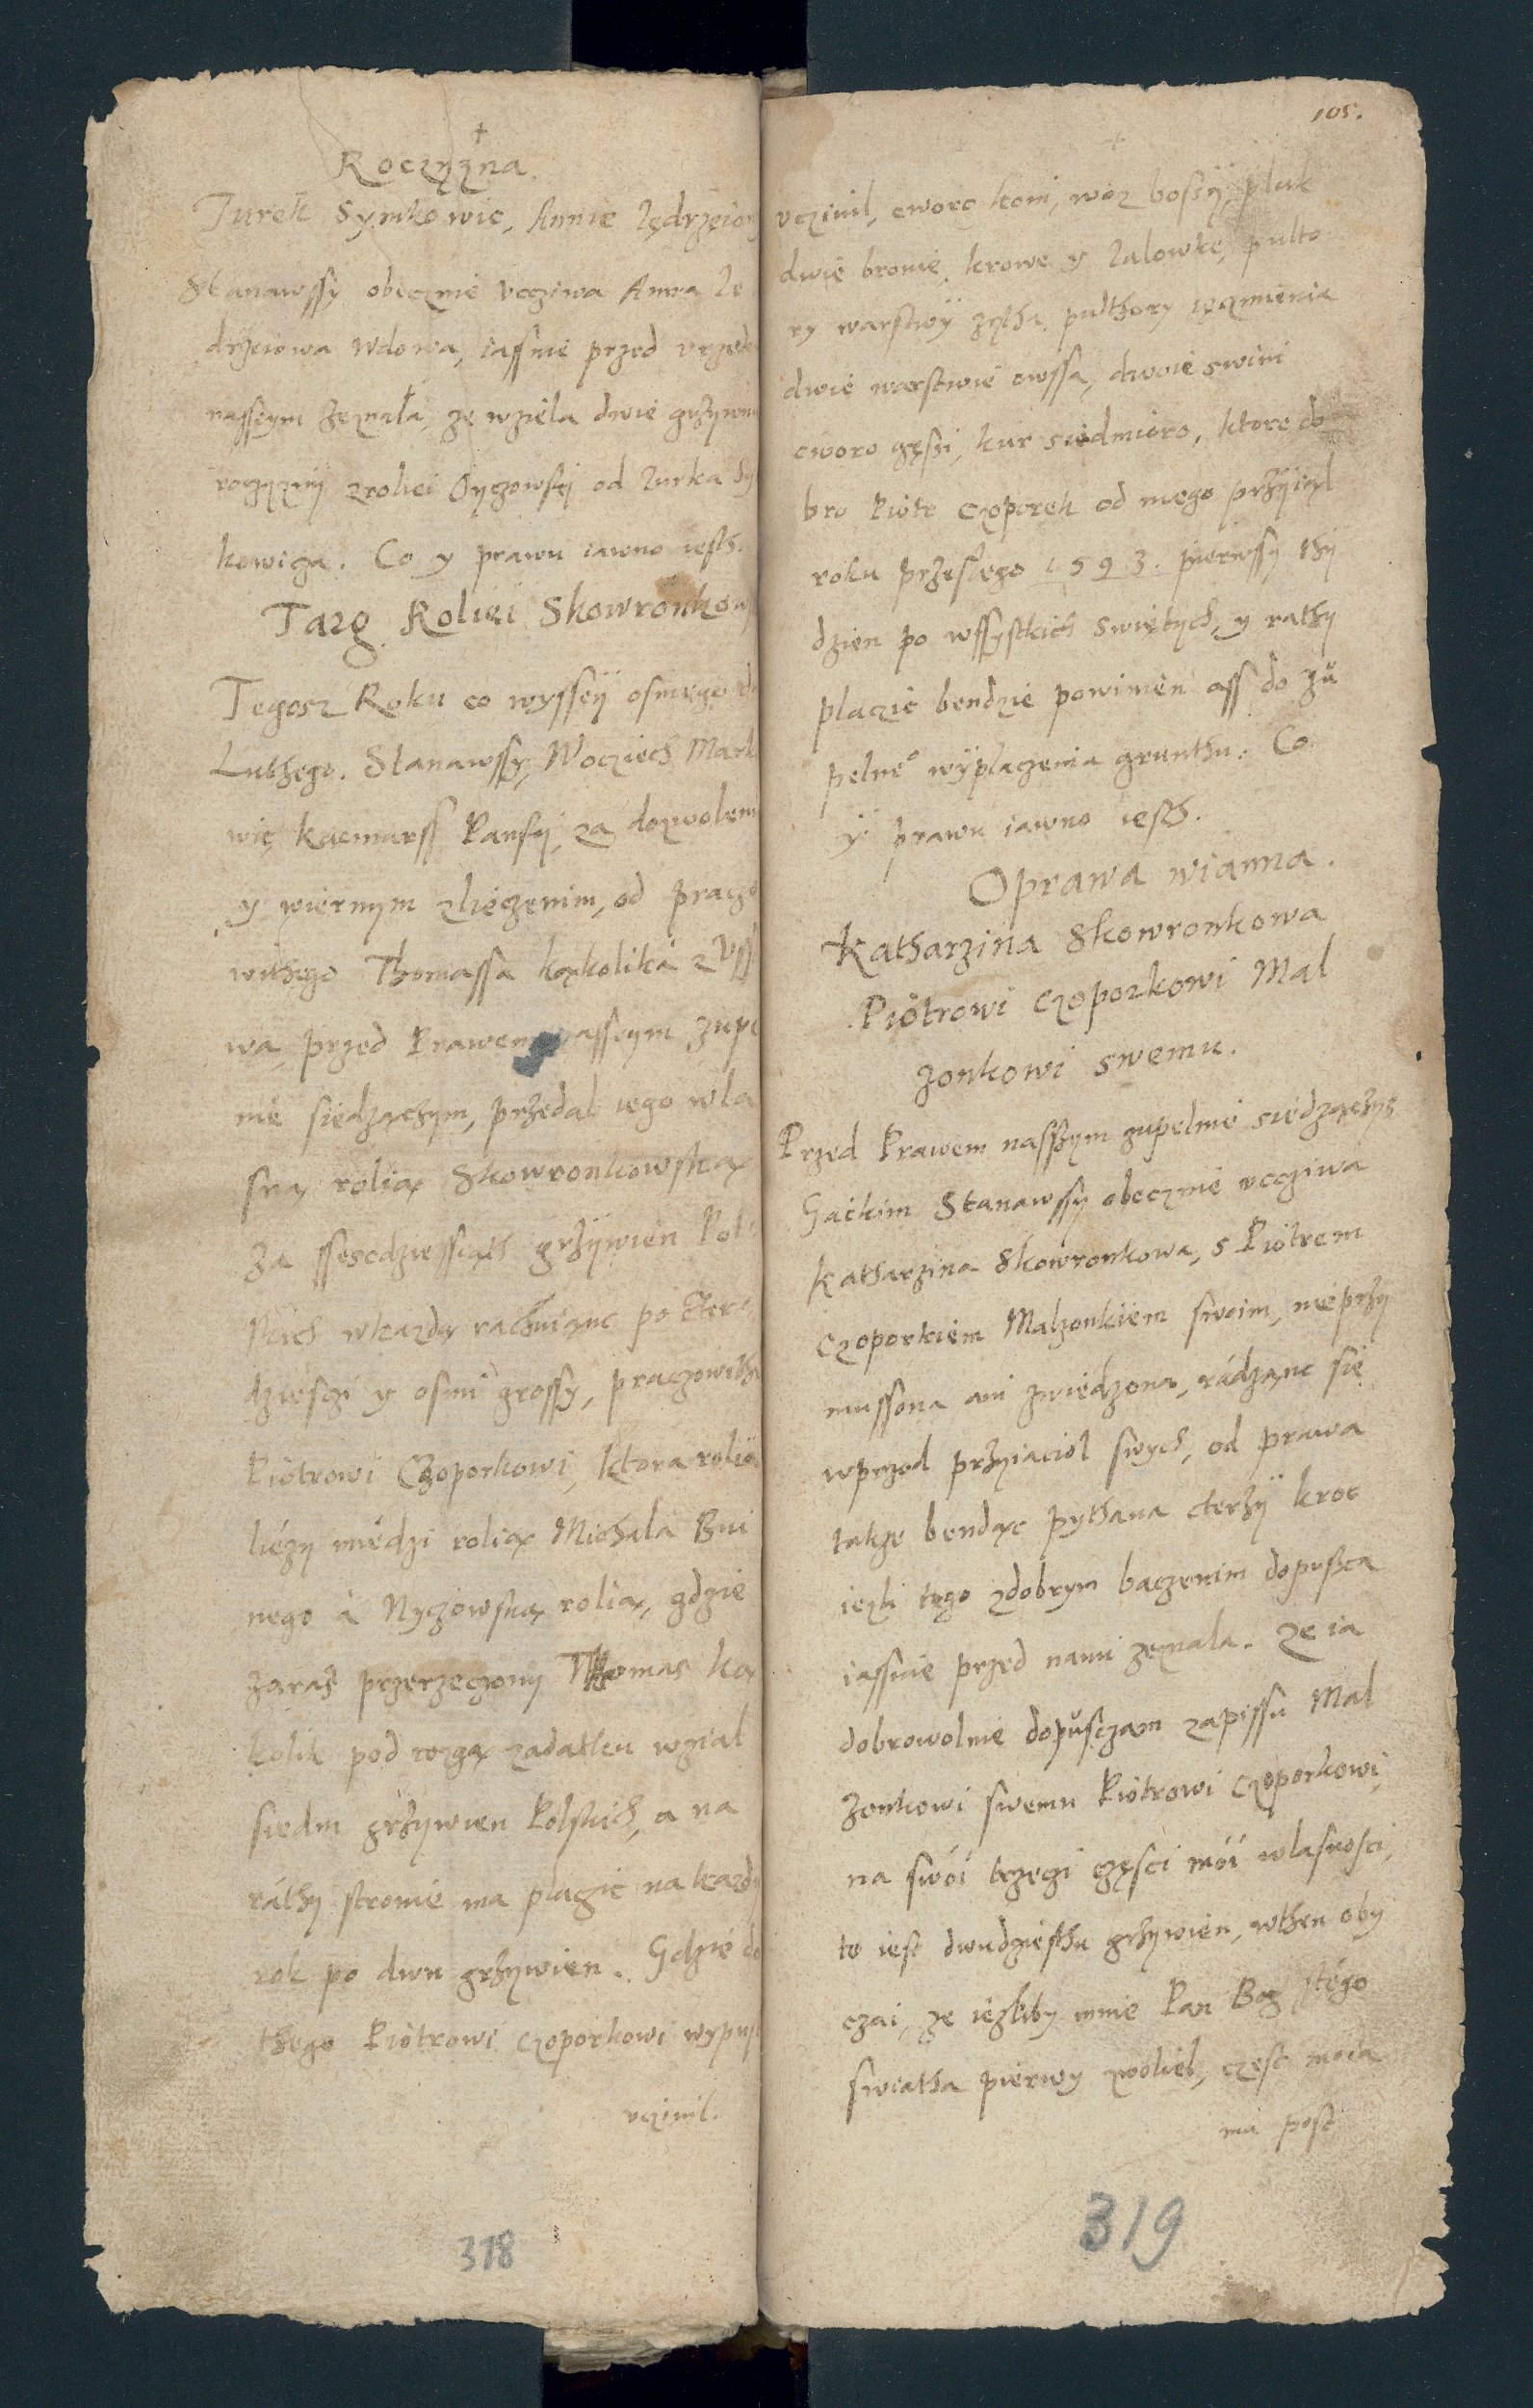 †
Roczyzna.
Jurek Symkowic, Annie Jędrzeiow
Stanawssy obecznie uczciwa Anna Je
drzeiowa wdowa, iassnie przed urzede
nasseym zeznała, ze wziela dwie grzywni
roczyzny z roliei Oyczowsky od Jurka Sy
kowicza. Co y prawu iawno iesth.
Targ Roliei Skowronkow
Tegosz Roku co wyssey osmego d
Luthego. Stanawssy, Wocziech Mark
wic kacmarss Pansky, za dozwolem
y wiernym zlieczenim, od praczo
withego Thomassa kąkolika z Uss
wa, przed Prawem nasseym zupe
nie siedzączym, przedal iego wla
sną rolią Skowronkowską
za ssescdziessiąth grzywien Pol
skich wkazdą rachuiąnc po cter
dziesczi y osmi grossy, praczowith
Piotrowi Czoporkowi, ktora rolia
liezy miedzi rolią Michala Bni
nego a Nyczowską rolią, gdzie
zaras przerzeczony Thomas ką
kolik pod rozgą zadatku wzial
siedm grzywien Polskich, a na
rathy stronie ma placzic na kazdy
rok po dwu grzywien. Gdzie do
thego Piotrowi Czoporkowi wypus
uczinil.
318
105.
uczinil, cworo koni, woz bossy, pluk
dwie bronie, krowe y Jalowke, pulto
ry warstwy zytha, pulthory ięczmienia
dwie warstwie owssa, dwoie swini
cworo gęssi, kur siedmioro, ktore do
bro Piotr Czoporek od niego przyiąl
roku przeslego 1593. pierwssy thy
dzien po wssystkich swiętych, y rathy
placzic bendzie powinien ass do zu
pelne⁰ wyplaczenia grunthu. Co
y prawu iawno iesth.
Oprawa wianna.
Katharzina Skowronkowa
Piotrowi Czoporkowi Mal
zonkowi swemu.
Przed Prawem nasszym zupelnie siedzączys
Gackim Stanawssy obecznie uczciwa
Katharzina Skowronkowa, s Piotrem
Czoporkiem Malzonkiem swoim, nieprzy
mussona ani zwiedzona, rádząnc się
wprzod przyiaciol swych, od prawa
takze bendąc pythana cterzy kroc
iezli tego z dobrym baczenim dopusca
iassnie przed nami zeznala. Ze ia
dobrowolnie dopusczam zapissu Mal
zonkowi swemu Piotrowi Czoporkowi
na swói trzeczi częsci mói wlasnosci,
to iest dwudziesthu grzywien, wthen oby
czai, ze iezliby mnie Pan Bog stégo
swiatha pierwy zwoliel, częsc moia
ma post
319